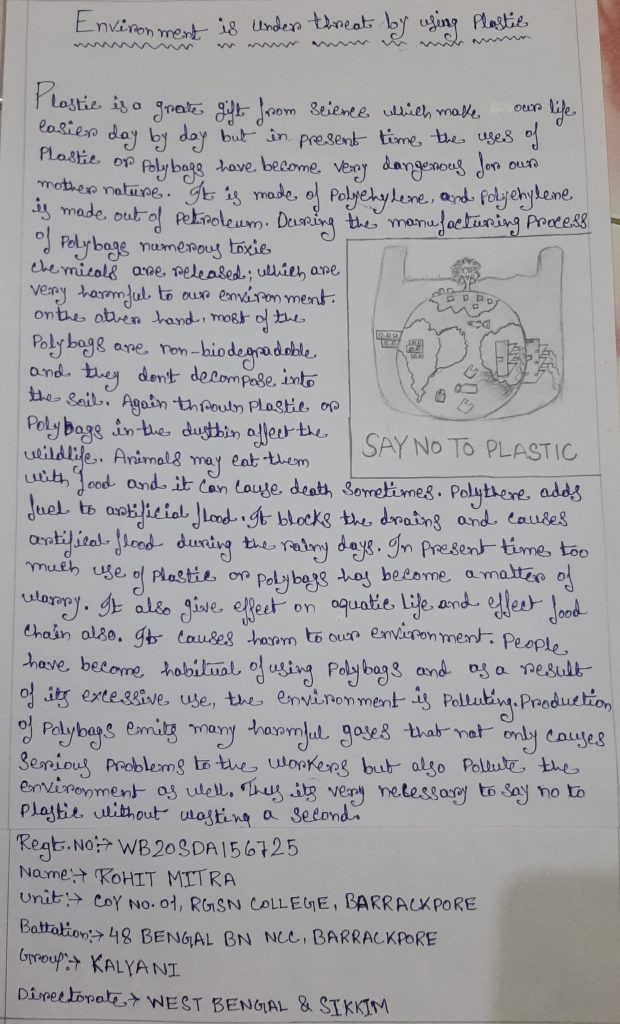 Environment is under threat by using Plastic
Plastic is a greate gift from science which make our life
easier day by day but in present time the uses of
Plastic or Polybags have become very dangerous for our
mother nature. It is made of Polyehylene, and Polyehylene
is made out of Petroleum. During the manufacturing Process
of Polybags numerous toxic
chemicals are released; which are
very harmful to our environment.
on the other hand, most of the
Polybags are non-biodegradable
and they don't decompose into
the soil. Again thrown Plastic or
Polybags in the dustbin affect the
wildlife. Animals may eat them
SAY NO TO PLASTIC
with food and it can cause death sometimes. Polythere adds
fuel to artificial flood. It blocks the drains and causes
artifical flood during the rainy days. In Present time too
much use of Plastic or Polybags has become a matter of
warry. It also give effect on aquatic life and effect food
chain also. It causes harm to our environment. People
have become habitual of using Polybags and as a result
of its excessive use, the environment is Polluting. Production
of Polybags emits many harmful gases that not only causes
serious Problems to the workers but also Pollute the
environment as well. Thus its very necessary to say no to
Plastic without wasting a second.
Regt. No:→ WB20SDA156725
Name:→ ROHIT MITRA
Unit:→ COY NO. 01, RGSN COLLEGE, BARRACKPORE
Battation:→ 48 BENGAL BN NCC, BARRACKPORE
Group:→ KALYANI
Directorate→ WEST BENGAL & SIKKIM